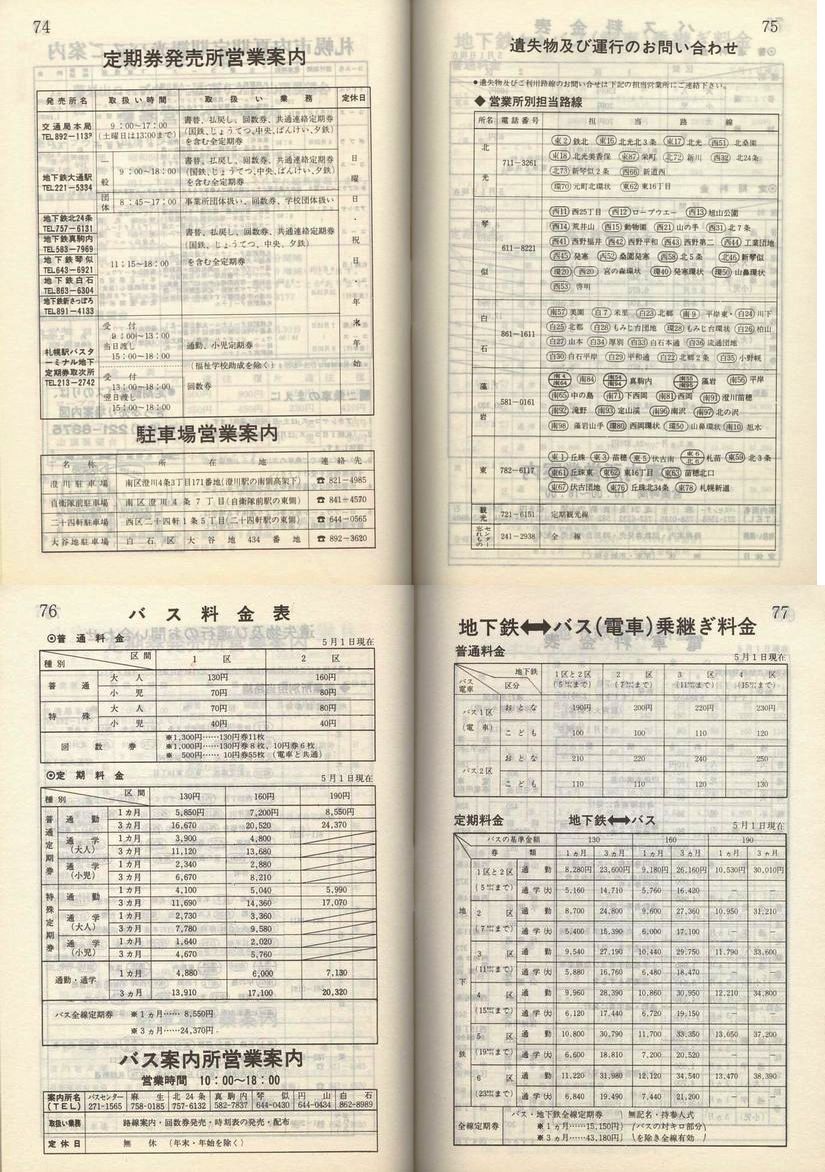 74
定期券発売所営業案内
発売所名 取扱い時間 取扱い業務 定休日
交通局本局 TEL892-113? 9:00~17:00 (土曜日は13:00まで) 書替、払戻し、回数券、共通連絡定期券
(国鉄、じょうてつ、中央、ばんけい、夕鉄)
を含む全定期券
地下鉄大通駅 TEL221-5334 一般 9:00~18:00 書替、払戻し、回数券、共通連絡定期券
(国鉄、じょうてつ、中央、ばんけい、夕鉄)
を含む全定期券
団体 8:45~17:00 事業所団体扱い、回数券、学校団体扱い
地下鉄北24条 TEL757-6131
地下鉄真駒内 TEL583-7969
地下鉄琴似 TEL643-6921
地下鉄白石 TEL863-6304
地下鉄新さっぽろ TEL891-4133
11:15~18:00 書替、払戻し、回数券、共通連絡定期券
(国鉄、じょうてつ、中央、夕鉄)
を含む全定期券
日曜日・祝日・年末年始
札幌駅バスターミナル地下定期券取次所 TEL213-2742
受付 9:00~13:00
当日渡し 15:00~18:00
通勤、小児定期券
(福祉学校助成を除く)
受付 9:00~18:00
翌日渡し 15:00~18:00
回数券
駐車場営業案内
名称 所在地 連絡先
澄川駐車場 南区澄川4条3丁目171番地(澄川駅の南側高架下) ☎821-4985
自衛隊前駐車場 南区澄川4条7丁目(自衛隊前駅の東側) ☎841-4570
二十四軒駐車場 西区二十四軒1条5丁目(二十四軒駅の東側) ☎644-0565
大谷地駐車場 白石区大谷地434番地 ☎892-3620
75
遺失物及び運行のお問い合わせ
●遺失物及びご利用路線のお問い合せは下記の担当営業所にご連絡下さい。
◆営業所別担当路線
所名 電話番号 担当路線
北光 711-3261
東2 鉄北 東16 北光北3条 東17 北光 西51 北桑園
東18 北光美香保 東87 栄町 北72 新川 西32 北24条
北73 新琴似2条 西66 新道西
環70 元町北環状 東62 東16丁目
琴似 611-8221
西11 西25丁目 西12 ロープウエー 西13 旭山公園
西14 荒井山 西15 動物園 西21 山の手 西31 北7条
西41 西野福井 西42 西野平和 西43 西野第二 西44 工業団地
西45 発寒 西52 桑園発寒 西58 北5条 北46 新琴似
環20 西20 宮の森環状 環40 発寒環状 環50 山鼻環状
西53 啓明
白石 861-1611
南57 美園 白7 米里 白23 北郷 南9 平岸東 白24 川下
白25 北都 白28 もみじ台団地 環28 もみじ台環状 白26 柏山
白27 山本 白34 厚別 白33 白石本通 白36 流通団地
白30 白石平岸 白29 平和通 白22 北郷2条 白35 小野幌
藻岩 581-0161
南84 真駒内 藻岩 南56 平岸
南65 中の島 南71 下西岡 南81 西岡 南91 澄川苗穂
南92 滝野 南93 定山渓 南96 南沢 南97 北の沢
南98 藻岩山手 環80 西岡環状 環50 山鼻環状 南10 旭水
東 782-6117
東1 丘珠 東3 苗穂 東5 伏古南 東6 北6 札苗 東59 北3条
東61 丘珠東 東62 東16丁目 東63 苗穂北口
東67 伏古団地 東76 丘珠北34条 東78 札幌新道
観光 721-6151 定期観光線
忘れものセンター 241-2938 全線
76
バス料金表
◎普通料金 5月1日現在
種別 区間 1区 2区
普通 大人 130円 160円
小児 70円 80円
特殊 大人 70円 80円
小児 40円 40円
回数券 ※1,300円……130円券11枚
※1,000円……130円券8枚、10円券6枚
※ 500円……10円券55枚 (電車と共通)
◎定期料金 5月1日現在
種別 区間 130円 160円 190円
普通定期券 通勤 1ヵ月 5,850円 7,200円 8,550円
3ヵ月 16,670 20,520 24,370
通学(大人) 1ヵ月 3,900 4,800
3ヵ月 11,120 13,680
通学(小児) 1ヵ月 2,340 2,880
3ヵ月 6,670 8,210
特殊定期券 通勤 1ヵ月 4,100 5,040 5,990
3ヵ月 11,690 14,360 17,070
通学(大人) 1ヵ月 2,730 3,360
3ヵ月 7,780 9,580
通学(小児) 1ヵ月 1,640 2,020
3ヵ月 4,670 5,760
通勤・通学 1ヵ月 4,880 6,000 7,130
3ヵ月 13,910 17,100 20,320
バス全線定期券 ※1ヵ月…… 8,550円
※3ヵ月……24,370円
バス案内所営業案内
営業時間 10:00~18:00
案内所名(TEL) バスセンター 271-1565 麻生 758-0185 北24条 757-6132 真駒内 582-7837 琴似 644-0430 円山 644-0434 白石 862-8989
取扱い業務 路線案内・回数券発売・時刻表の発売・配布
定休日 無休 (年末・年始を除く)
77
地下鉄⟷バス(電車)乗継ぎ料金
普通料金 5月1日現在
バス電車 地下鉄 区分 1区と2区 (5㎞まで) 2区 (7㎞まで) 3区 (11㎞まで) 4区 (15㎞まで)
バス1区(電車) おとな 190円 200円 220円 230円
こども 100 100 110 120
バス2区 おとな 210 220 240 250
こども 110 110 120 130
定期料金 地下鉄⟷バス 5月1日現在
バスの基準金額 130 160 190
券類 1ヵ月 3ヵ月 1ヵ月 3ヵ月 1ヵ月 3ヵ月
地下鉄
1区と2区 (5㎞まで) 通勤 8,280円 23,600円 9,180円 26,160円 10,530円 30,010円
通学(大) 5,160 14,710 5,760 16,420 — —
2区 (7㎞まで) 通勤 8,700 24,800 9,600 27,360 10,950 31,210
通学(大) 5,400 15,390 6,000 17,100 — —
3区 (11㎞まで) 通勤 9,540 27,190 10,440 29,750 11,790 33,600
通学(大) 5,880 16,760 6,480 18,470 — —
4区 (15㎞まで) 通勤 9,960 28,390 10,860 30,950 12,210 34,800
通学(大) 6,120 17,440 6,720 19,150 — —
5区 (19㎞まで) 通勤 10,800 30,790 11,700 33,350 13,050 37,200
通学(大) 6,600 18,810 7,200 20,520 — —
6区 (23㎞まで) 通勤 11,220 31,980 12,120 34,540 13,470 38,390
通学(大) 6,840 19,490 7,440 21,200 — —
全線定期券 バス・地下鉄全線定期券
※1ヵ月……15,150円
※3ヵ月……43,180円
無記名・持参人式
(バスの対キロ部分を除き全線有効)